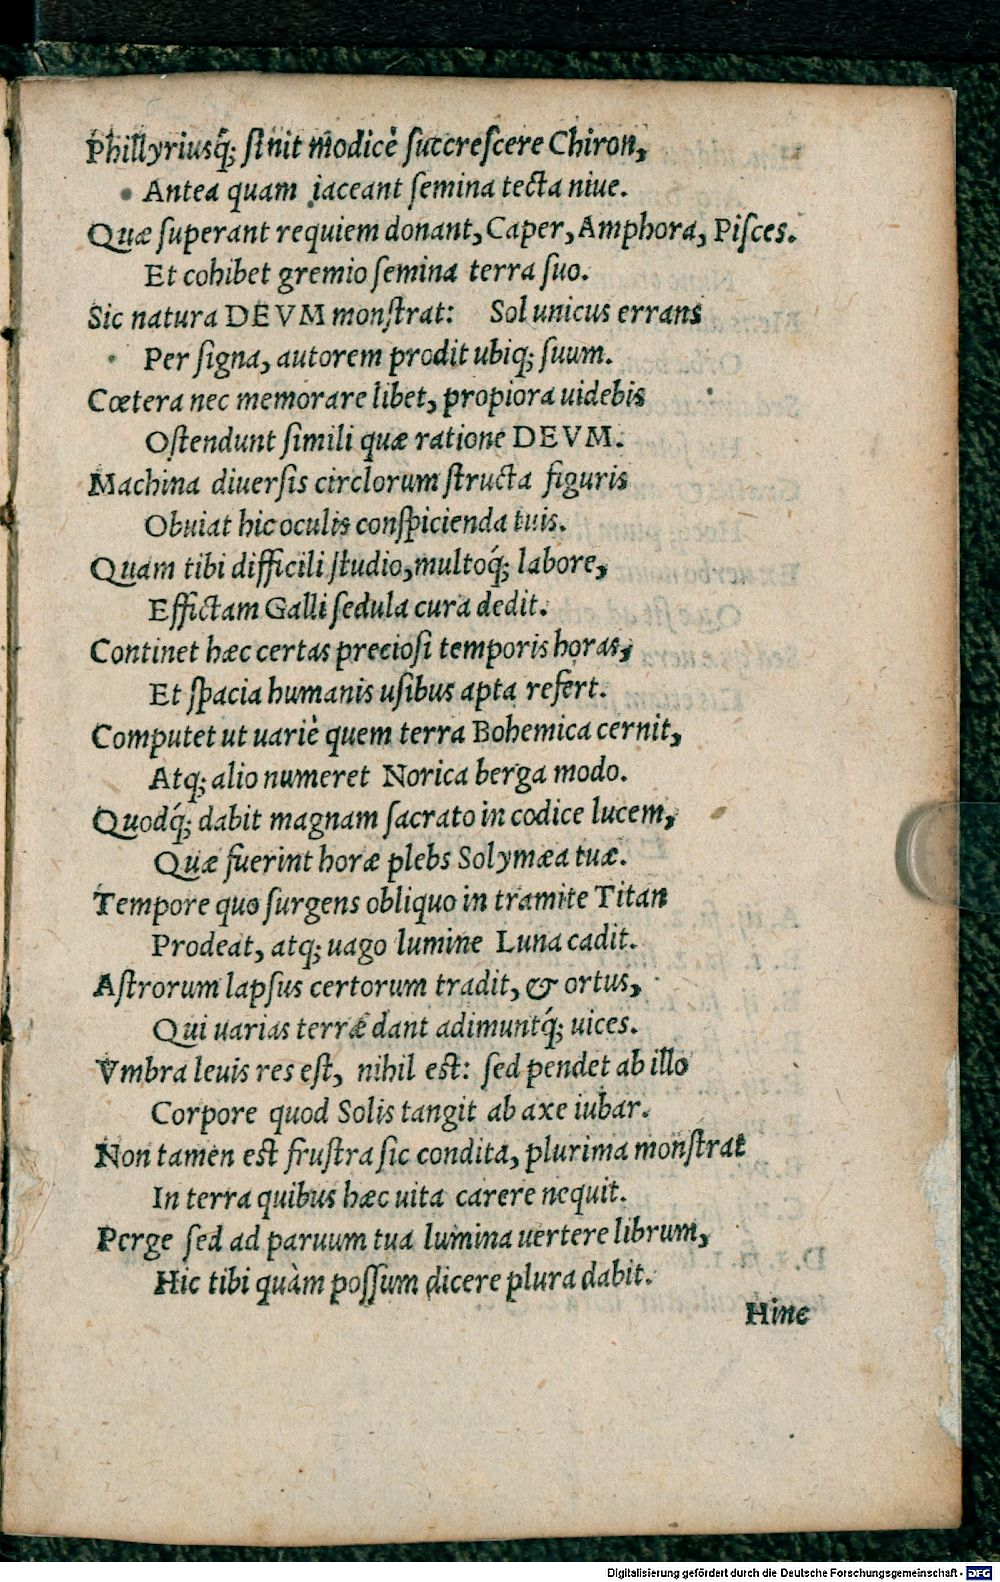 Phillyriusq́; sinit modicè succrescere Chiron,
Antea quam iaceant semina tecta niue.
Quæ superant requiem donant, Caper, Amphora, Pisces.
Et cohibet gremio semina terra suo.
Sic natura DEVM monstrat: Sol unicus errans
Per signa, autorem prodit ubiq; suum.
Cœtera nec memorare libet, propiora uidebis
Ostendunt simili quæ ratione DEVM.
Machina diuersis circlorum structa figuris
Obuiat hic oculis conspicienda tuis.
Quam tibi difficili studio, multoq́; labore,
Effictam Galli sedula cura dedit.
Continet hæc certas preciosi temporis horas,
Et spacia humanis usibus apta refert.
Computet ut uariè quem terra Bohemica cernit,
Atq; alio numeret Norica berga modo.
Quodq́; dabit magnam sacrato in codice lucem,
Quæ fuerint horæ plebs Solymæa tuæ.
Tempore quo surgens obliquo in tramite Titan
Prodeat, atq; uago lumine Luna cadit.
Astrorum lapsus certorum tradit, & ortus,
Qui uarias terræ dant adimuntq́; uices.
Vmbra leuis res est, nihil est: sed pendet ab illo
Corpore quod Solis tangit ab axe iubar.
Non tamen est frustra sic condita, plurima monstrat
In terra quibus hæc uita carere nequit.
Perge sed ad paruum tua lumina uertere librum,
Hic tibi quàm possum dicere plura dabit.
Hinc
Digitalisierung gefördert durch die Deutsche Forschungsgemeinschaft - DFG